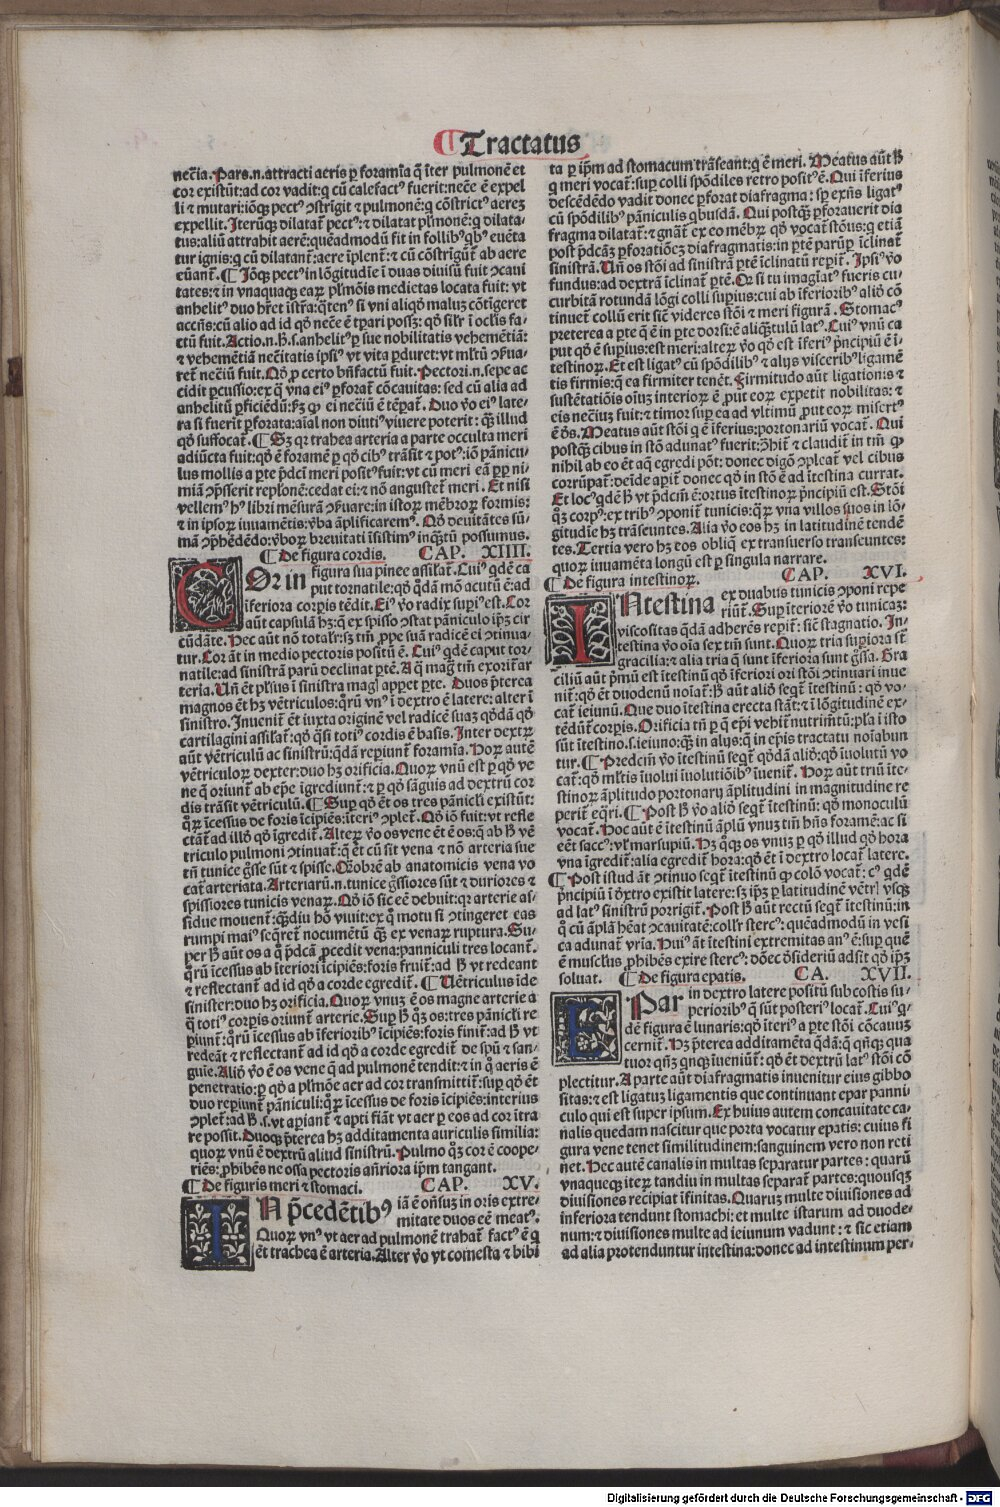 Tractatus
nec̄ia. Pars .n. attracti aeris ꝑ foramīa q̄ īter pulmonē et
cor existūt: ad cor vadit: q̄ cū calefact⁹ fuerit: necē ē expel
li ⁊ mutari: iōqꝫ pect⁹ ꝯstrīgit ⁊ pulmonē: q̄ cōstrict⁹ aereꝫ
expellit. Iterūqꝫ dilatat̄ pect⁹: ⁊ dilatat pl̄monē: q̄ dilata-
tus: aliū attrahit aerē: quēadmodū fit in follib⁹ qb⁹ euēta
tur ignis: q̄ cū dilatant̄: aere īplent̄: ⁊ cū cōstrīgūt̄ ab aere
eūant̄. ¶ Iōqꝫ pect⁹ in lōgitudīe ī duas diuisū fuit ꝯcaui
tates: ⁊ in vnaquaqꝫ eaꝝ pl̄mōis medietas locata fuit: vt
anhelit⁹ duo hr̄et īstr̄a: q̄ten⁹ si vni aliqō maluꝫ cōtīgeret
accn̄s: cū alio ad id qō necē ē tꝑari possꝫ: qō sil̄r ī ocl̄is fa-
ctū fuit. Actio .n. ꝫ .s. anhelit⁹ ꝑ sue nobilitatis vehemētiā:
⁊ vehemētiā nec̄itatis ipsi⁹ vt vita ꝑduret: vt ml̄tū ꝯẜua-
ret̄ nec̄iū fuit. Qō ꝓ certo bn̄factū fuit. Pectori .n. sepe ac
cidit ꝑcussio: ex q̄ vna ei⁹ ꝑforat̄ cōcauitas: sed cū alia ad
anhelitū ꝑficiēdū: hꝫ qꝫ ei nec̄iū ē tēꝑat̄. Duo v̄o ei⁹ late-
ra si fuerīt ꝑforata: aīal non diuti⁹ viuere poterit: qꝫ illud
qō suffocat̄. ¶ Sꝫ qꝛ trahea arteria a parte occulta meri
adiūcta fuit: qō ē foramē ꝑ qō cib⁹ trāsit ⁊ pot⁹: iō pānicu-
lus mollis a ꝑte p̄dc̄i meri posit⁹ fuit: vt cū meri eā ꝑꝑ ni-
miā ꝯp̄sserit replōnē: cedat ei: ⁊ nō angustet̄ meri. Et nisi
vellem⁹ h⁹ libri mēsurā ꝯẜuare: in istoꝝ mēbroꝝ formis:
⁊ in ipsoꝝ iuuamētis: v̄ba āplificarem⁹. Qō deuitātes sū-
mā ꝯp̄hēdēdo: v̄boꝝ breuitati īsistim⁹ inqꝫtū possumus.
¶ De figura cordis. CAP. XIIII.
COr in figura sua pinee assilat̄. Cui⁹ qdē ca
put tornatile: qō qdā mō acutū ē: ad
īferiora corpis tēdit. Ei⁹ v̄o radix supi⁹ est. Cor
aūt capsulā hꝫ: q̄ ex spisso ꝯstat pāniculo ip̄ꝫ cir
cūdāte. Hec aūt nō total̄r: sꝫ tm̄ ꝓpe suā radicē ei ꝯtinua-
tur. Cor āt in medio pectoris positū ē. Cui⁹ qdē caput tor-
natile: ad sinistrā parū declinat ꝑtē. A q̄ mag tm̄ exorīt̄ ar
teria. Un̄ ēt pl̄sus ī sinistra magl̄ appet ꝑte. Duos p̄terea
magnos ēt hꝫ vētriculos: qꝝū vn⁹ ī dextro ē latere: alter ī
sinistro. Inuenit̄ ēt iuxta originē vel radicē suaꝫ qdā qō
cartilagini assil̄at̄: qō q̄si toti⁹ cordis ē basis. Inter dextrꝝ
aūt vētriculū ac sinistrū: qdā repiunt̄ foramīa. Hoꝝ autē
vētriculoꝝ dexter: duo hꝫ orificia. Quoꝝ vnū est ꝑ qō ve
ne q̄ oriunt̄ ab epe īgrediunt̄: ⁊ ꝑ qō sāguis ad dextrū cor
dis trāsit vētriculū. ¶ Sup qō ēt os tres pānicl̄i existūt:
qꝝ īcessus de foris īcipiēs: īteri⁹ ꝯplet̄. Qō iō fuit: vt refle
ctāt̄ ad illō qō īgredit̄. Alteꝝ v̄o os vene ēt ē os: q̄ ab ꝫ vē
triculo pulmoni ꝯtinuat̄: q̄ ēt cū sit vena ⁊ nō arteria sue
tn̄ tunice gsse sūt ⁊ spisse. Qrobrē ab anatomicis vena vo
cat̄ arteriata. Arteriarū .n. tunice gssiores sūt ⁊ duriores ⁊
spissiores tunicis venaꝝ. Qō iō sic eē debuit: qꝛ arterie as-
sidue mouent̄: qꝫdiu hō viuit: ex q̄ motu si ꝯtingeret eas
rumpi mai⁹ seqret̄ nocumētū qꝫ ex venaꝝ ruptura. Su-
per ꝫ aūt os a q̄ p̄dcā ꝓcedit vena: panniculi tres locant̄.
qꝝū īcessus ab īteriori īcipiēs: foris fruit̄: ad ꝫ vt redeant
⁊ reflectant̄ ad id qō a corde egredit̄. ¶ Uētriculus īde
sinister: duo hꝫ orificia. Quoꝝ vnuꝫ ē os magne arterie a
q̄ toti⁹ corpis oriunt̄ arterie. Sup ꝫ qꝫ os: tres pānicl̄i re
piunt̄: qꝝū īcessus ab īferiorib⁹ īcipiēs: foris finit̄: ad ꝫ vt
redeāt ⁊ reflectant̄ ad id qō a corde egredit̄ de spū ⁊ san-
guīe. Aliō v̄o ē os vene q̄ ad pulmonē tendit: ⁊ in q̄ aeris ē
penetratio: ꝑ qō a pl̄mōe aer ad cor transmittit̄: sup qō ēt
duo repiunt̄ pāniculi: qꝝ īcessus de foris īcipiēs: interius
ꝯplet̄: ad ꝫ .s. vt apiant̄ ⁊ apti fiāt vt aer ꝑ eos ad cor ītra
re possit. Duoqꝫ p̄terea hꝫ additamenta auriculis similia:
quoꝝ vnū ē dextrū aliud sinistrū. Pulmo qꝫ cor ē coope-
riēs: ꝓhibēs ne ossa pectoris añriora ip̄m tangant.
¶ De figuris meri ⁊ stomaci. CAP. XV.
IN p̄cedētib⁹ iā ē oñsuꝫ in oris extre-
mitate duos eē meat⁹.
Quoꝝ vn⁹ vt aer ad pulmonē trahat̄ fact⁹ ē q̄
ēt trachea ē arteria. Alter v̄o vt comesta ⁊ bibi
ta ꝑ ip̄m ad stomacum trāseant: q̄ ē meri. Meatus aūt ꝫ
q̄ meri vocat̄: sup colli spōdiles retro posit⁹ ē. Qui īferius
descēdēdo vadit donec ꝑforat diafragma: sꝑ exn̄s ligat⁹
cū spōdilib⁹ pāniculis qbusdā. Qui postqꝫ ꝑforauerit dia
fragma dilatat̄: ⁊ gnāt̄ ex eo mēbꝝ qō vocat̄ stōus: q̄ etiā
post p̄dcāꝫ ꝑforatiōeꝫ diafragmatis: in ꝑtē parūꝑ īclinat̄
sinistrā. Un̄ os stōi ad sinistrā ꝑtē īclinatū reꝑit̄. Ipsi⁹ v̄o
fundus: ad dextrā īclinat̄ ꝑtē. Or si tu imagīat⁹ fueris cu-
curbitā rotundā lōgi colli supius: cui ab īferiorib⁹ aliō cō
tinuet̄ collū erit siē videres stōi ⁊ meri figurā. Stomac⁹
preterea a ꝑte q̄ ē in ꝑte dorsi: ē aliqꝫtulū lat⁹. Cui⁹ vnū ca
put qō ē supius: est meri: alterꝝ v̄o qō est īferi⁹ p̄ncipiū ē ī-
testinoꝝ. Et est ligat⁹ cū spōdilib⁹ ⁊ alijs visceribꝰ ligamē
tis firmis: q̄ ea firmiter tenēt. Firmitudo aūt ligationis ⁊
sustētatiōis oīuꝫ interioꝝ ē ꝓut eoꝝ expetit nobilitas: ⁊
eis neciuꝫ fuit: ⁊ timor sup ea ad vltimū ꝓut eoꝝ misert⁹
ē os. Meatus aūt stōi q̄ ē īferius: portonariū vocat̄. Qui
postqꝫ cibus in stō adunat⁹ fuerit: ꝯhibet̄ ⁊ claudit̄ in tm̄ qꝫ
nihil ab eo ēt aq̄ egredi pōt: donec digō ꝯpleat̄ vel cibus
corrūpat̄: deīde aꝑit̄ donec qō in stō ē ad ītestina currat.
Et loc⁹ qdē ꝫ vt p̄dcm̄ ē: ortus ītestinoꝝ p̄ncipiū est. Stōi
qꝫ corp⁹: ex trib⁹ ꝯponit̄ tunicis: qꝝ vna villos suos in lō-
gitudīe hꝫ trāseuntes. Alia v̄o eos hꝫ in latitudinē tendē
tes. Tertia vero hꝫ eos obliq̄ ex transuerso transeuntes:
quoꝝ iuuamēta longū est ꝑ singula narrare.
¶ De figura intestinoꝝ. CAP. XVI.
INtestina ex duabus tunicis ꝯponi repe
riūt̄. Sup īteriorē v̄o tunicaꝫ:
viscositas qdā adherēs reꝑit̄: sic̄ stagnatio. In-
testina v̄o oīa sex tm̄ sunt. Quoꝝ tria supiora st̄
gracilia: ⁊ alia tria q̄ sunt īferiora sunt gssa. Gra
ciliū aūt p̄mū est ītestinū qō īferiori ori stōi ꝯtinuari inue
nit̄: qō ēt duodenū noīat̄: ꝫ aūt aliō seqt̄ ītestinū: qō vo-
cat̄ ieiunū. Que duo ītestina erecta stāt̄: ⁊ ī lōgitudinē ex-
tēdūt̄ corpis. Orificia tn̄ ꝑ q̄ epi vehit̄ nutrim̄tū: pl̄a ī isto
sūt ītestino .s. ieiuno: qꝫ in alijs: q̄ in epis tractatu noīabun
tur. ¶ Predcm̄ v̄o ītestinū seqt̄ qddā aliō: qō īuolutū vo
cat̄: qō ml̄tis īuolui īuolutiōib⁹ īuenit̄. Hoꝝ aūt triū īte-
stinoꝝ āplitudo portonary āplitudini in magnitudine re
perit̄ eqri. ¶ Post ꝫ v̄o aliō seqt̄ ītestinū: qō monoculū
vocat̄. Hoc aūt ē ītestinū āplū vnuꝫ tm̄ hn̄s foramē: ac si
eēt sacc⁹: vl̄ marsupiū. Hꝫ qꝫ os vnuꝫ ꝑ qō illud qō hora
vna īgredit̄: alia egredit̄ hora: qō ēt ī dextro locat̄ latere.
¶ Post istud āt ꝯtinuo seqt̄ ītestinū qꝫ colō vocat̄: c⁹ qdē
p̄ncipiū ī dextro existit latere: sꝫ ip̄ꝫ ꝑ latitudinē vētrī vsqꝫ
ad lat⁹ sinistrū porrigit̄. Post ꝫ aūt rectū seqt̄ ītestinū: in
q̄ cū āplā hēat ꝯcauitatē: coll̄r sterc⁹: quēadmodū in vesi
ca adunat̄ vria. Hui⁹ āt ītestini extremitas an⁹ ē: sup quē
ē muscl̄us ꝓhibēs exire sterc⁹: dōec dꝰsideriū adsit qō ip̄ꝫ
soluat. ¶ De figura epatis. CA. XVII.
EPar in dextro latere positū sub costis su-
perioribꝰ q̄ sūt posteri⁹ locat̄. Cui⁹ q-
dē figura ē lunaris: qō īteri⁹ a ꝑte stōi cōcauuꝫ
cernit̄. Hꝫ p̄terea additamēta qdā: q̄ qn̄qꝫ qua
tuor qn̄ꝫ qnqꝫ īueniūt̄: qō ēt dextrū lat⁹ stōi cō
plectitur. A parte aūt diafragmatis inuenitur eius gibbo
sitas: ⁊ est ligatuꝫ ligamentis que continuant epar panni
culo qui est super ipsum. Ex huius autem concauitate ca-
nalis quedam nascitur que porta vocatur epatis: cuius fi
gura vene tenet similitudinem: sanguinem vero non reti
net. Hec autē canalis in multas separatur partes: quarū
vnaqueqꝫ iteꝝ tandiu in multas separat̄ partes: quousqꝫ
diuisiones recipiat īfinitas. Quaruꝫ multe diuisiones ad
inferiora tendunt stomachi: et multe istarum ad duode-
num: ⁊ diuisiones multe ad ieiunum vadunt: ⁊ sic etiam
ad alia protenduntur intestina: donec ad intestinum per-
Digitalisierung gefördert durch die Deutsche Forschungsgemeinschaft - DFG